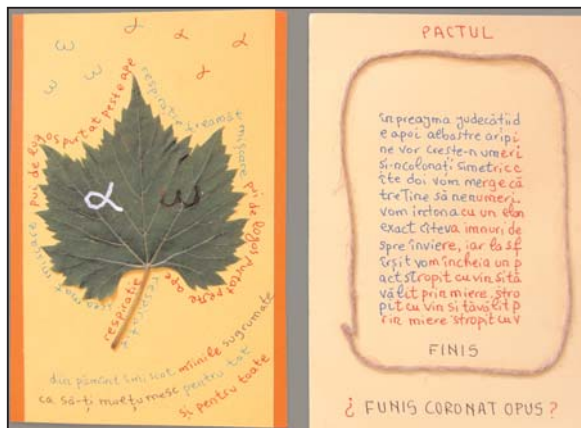 ω α α α
ω ω ω α
pui de logos purtat peste ape
respirație geamăt mișcare
pui de logos purtat peste ape
respirație
α ω
din pămînt îmi scot mîinile sugrumate
ca să-ți mulțumesc pentru tot
și pentru toate
PACTUL
în preajma judecății d
e apoi albastre aripi
ne vor crește-n umeri
și-ncolonați simetric c
îte doi vom merge că
tre Tine să nenumeri.
vom intona cu un elan
exact cîteva imnuri de
spre înviere, iar la sf
îrșit vom încheia un p
act stropit cu vin și tă
vălit prin miere. stro
pit cu vin și tăvălit p
rin miere stropit cu v
FINIS
¿ FUNIS CORONAT OPUS ?